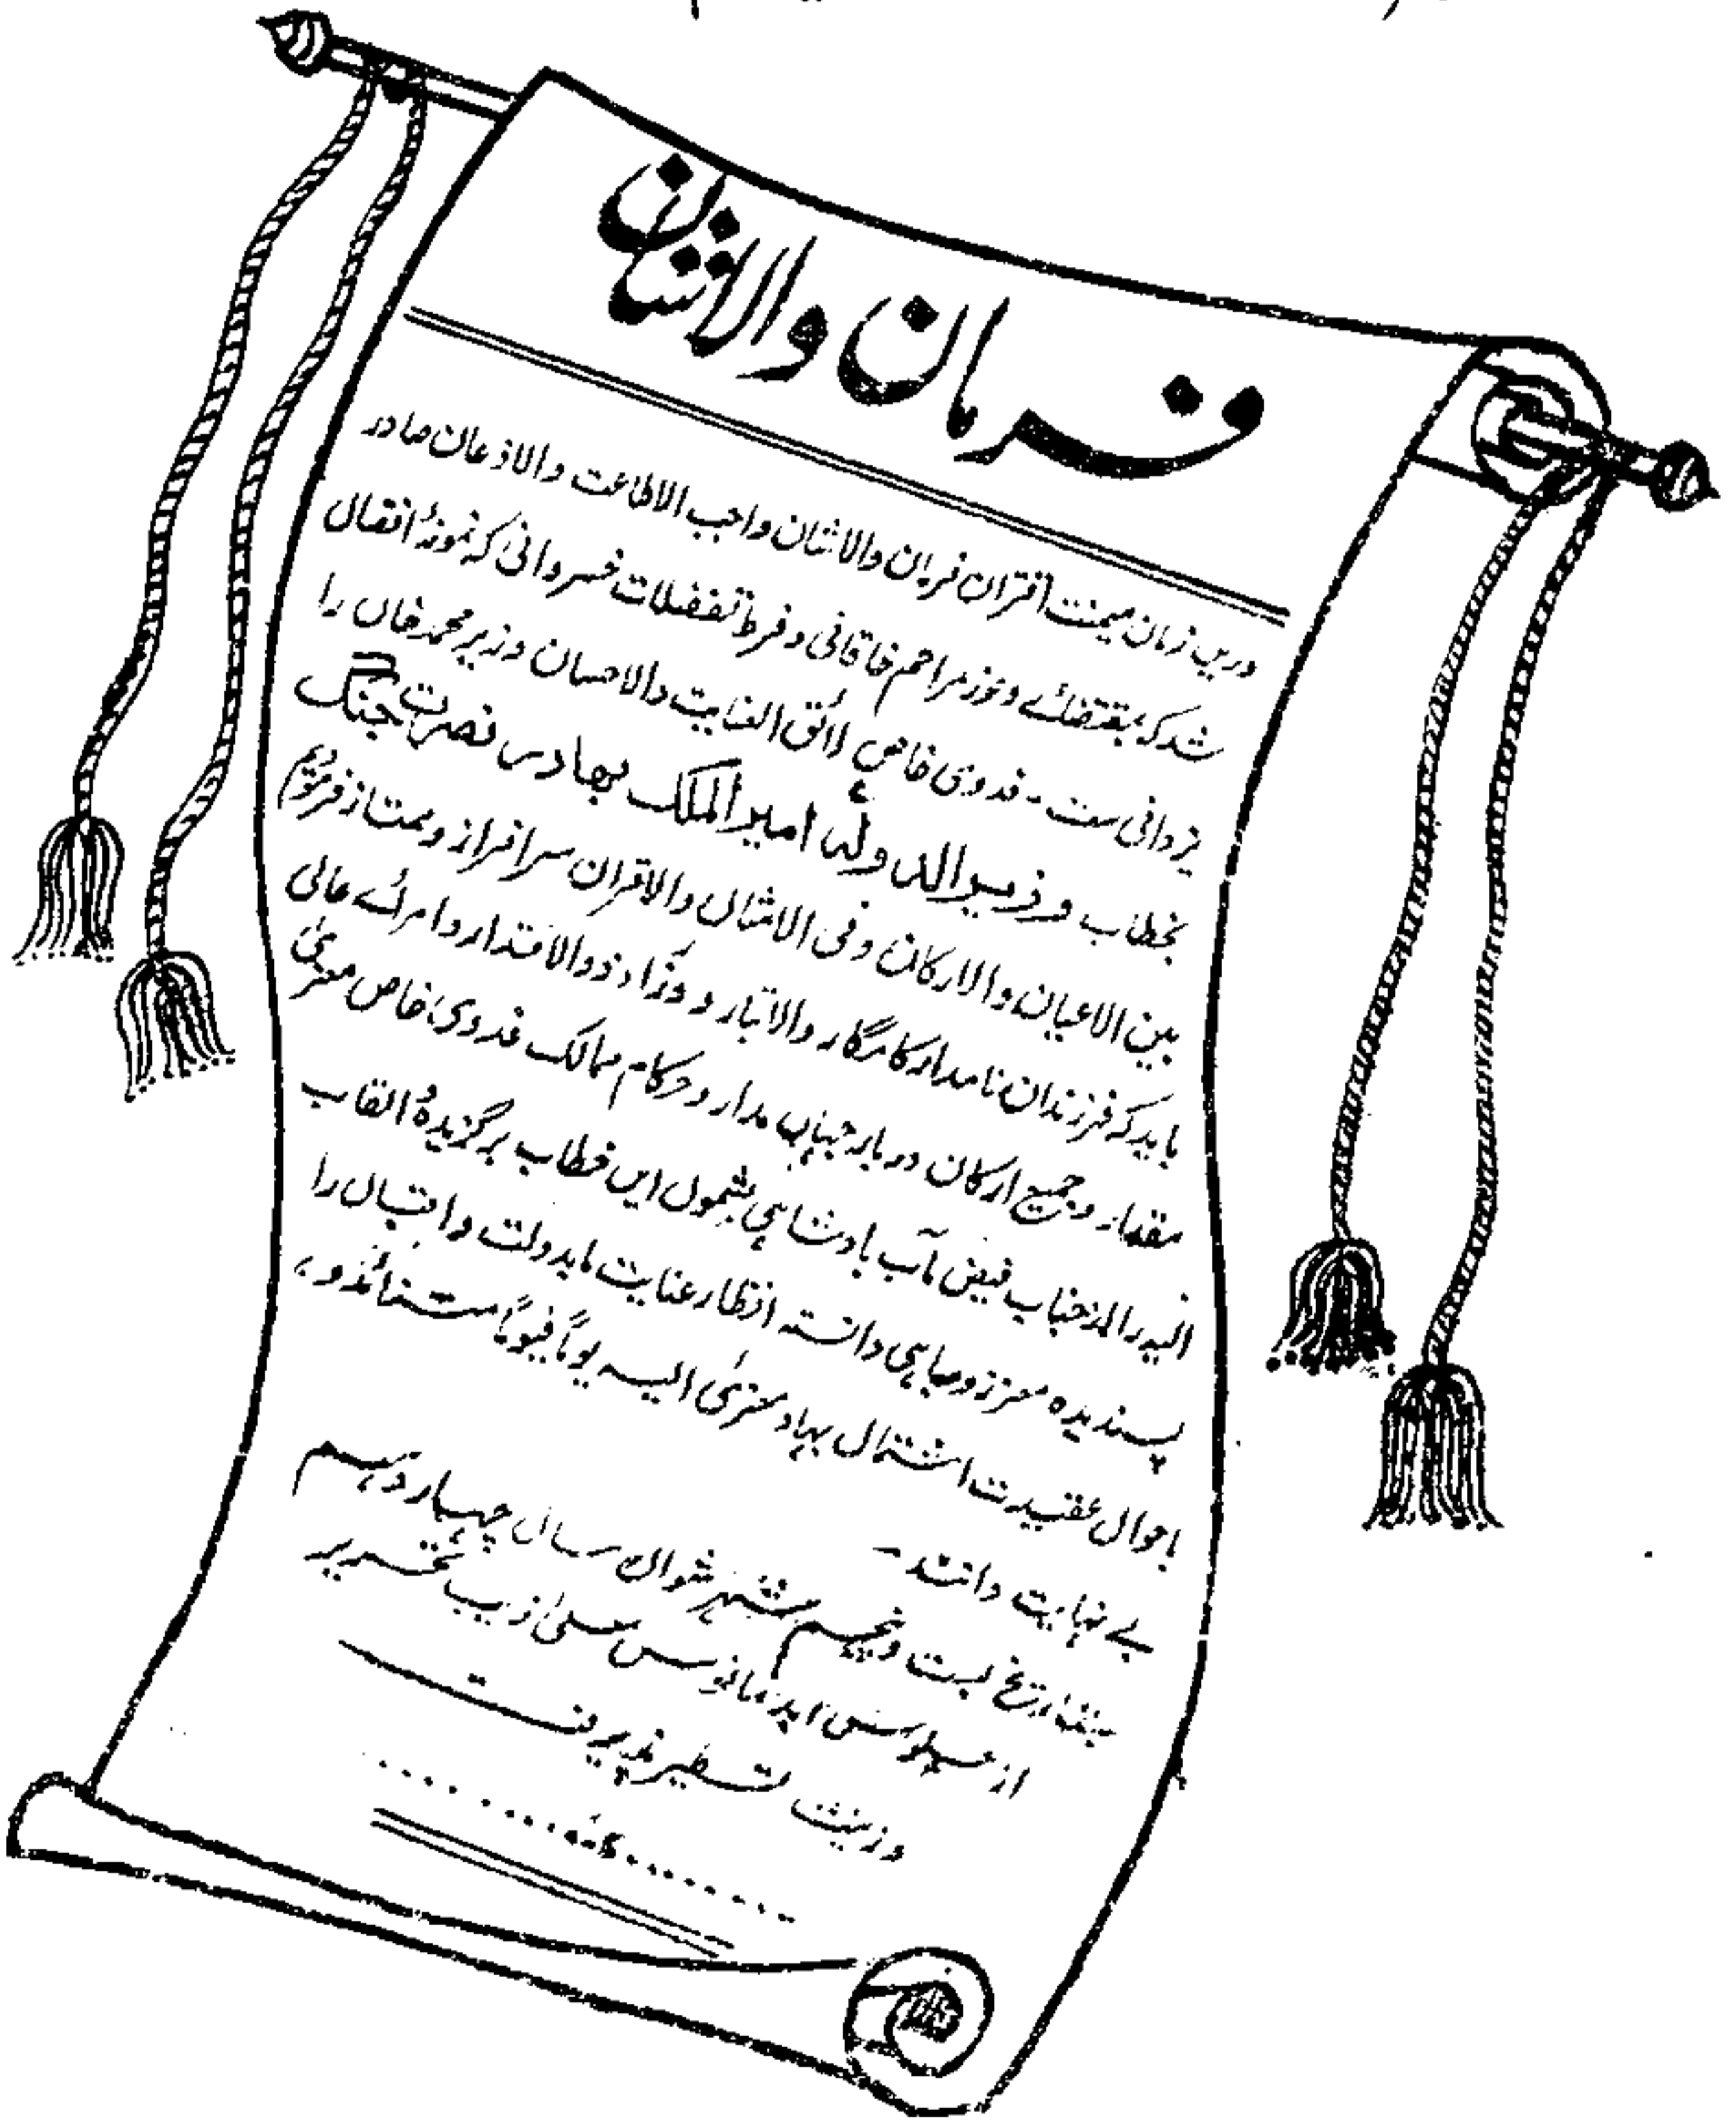 فرمان والاشان
درین زمان میمنت اقتران فرمان والاشان واجب الاطاعت والاذعان صادر
شد که بمقتضائے وفور مراحم خاقانی و فرط تفضلات خسروانی که نمونۂ افضال
یزدانی ست - فدوی خاص لائق العنایت والاحسان وزیر محمد خاں را
بخطاب وزیر الدولہ امیر الملک بہادر نصرت جنگ
بین الاعیان والارکان وفی الامثال والاقران سرافراز و ممتاز فرمودیم
باید که فرزندان نامدار کامگار والاتبار و وزراء ذوالاقتدار و امرائے عالی
مقدار و جمیع ارکان دربار جہاں مدار و حکام ممالک فدوی خاص معزیٰ
الیہ را از جناب فیض مآب بادشاہی بشمول این خطاب برگزیدۂ القاب
پسندیدہ معزز و مباہی دانستہ انظار عنایت مابدولت و اقبال را
باحوال عقیدت اشتمال بہادر معزیٰ الیہ یوماً فیوماً متزائد و
بے نہایت دانند -
بتاریخ بست و پنجم شہر شوال سال چہاردہم
از جلوس ابد مانوس معلی زیب تحریر
وزینت تسطیر پذیرفت